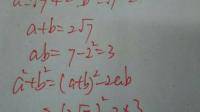 a+b=2√7
ab=7-2²=3
a²+b²=(a+b)²-2ab